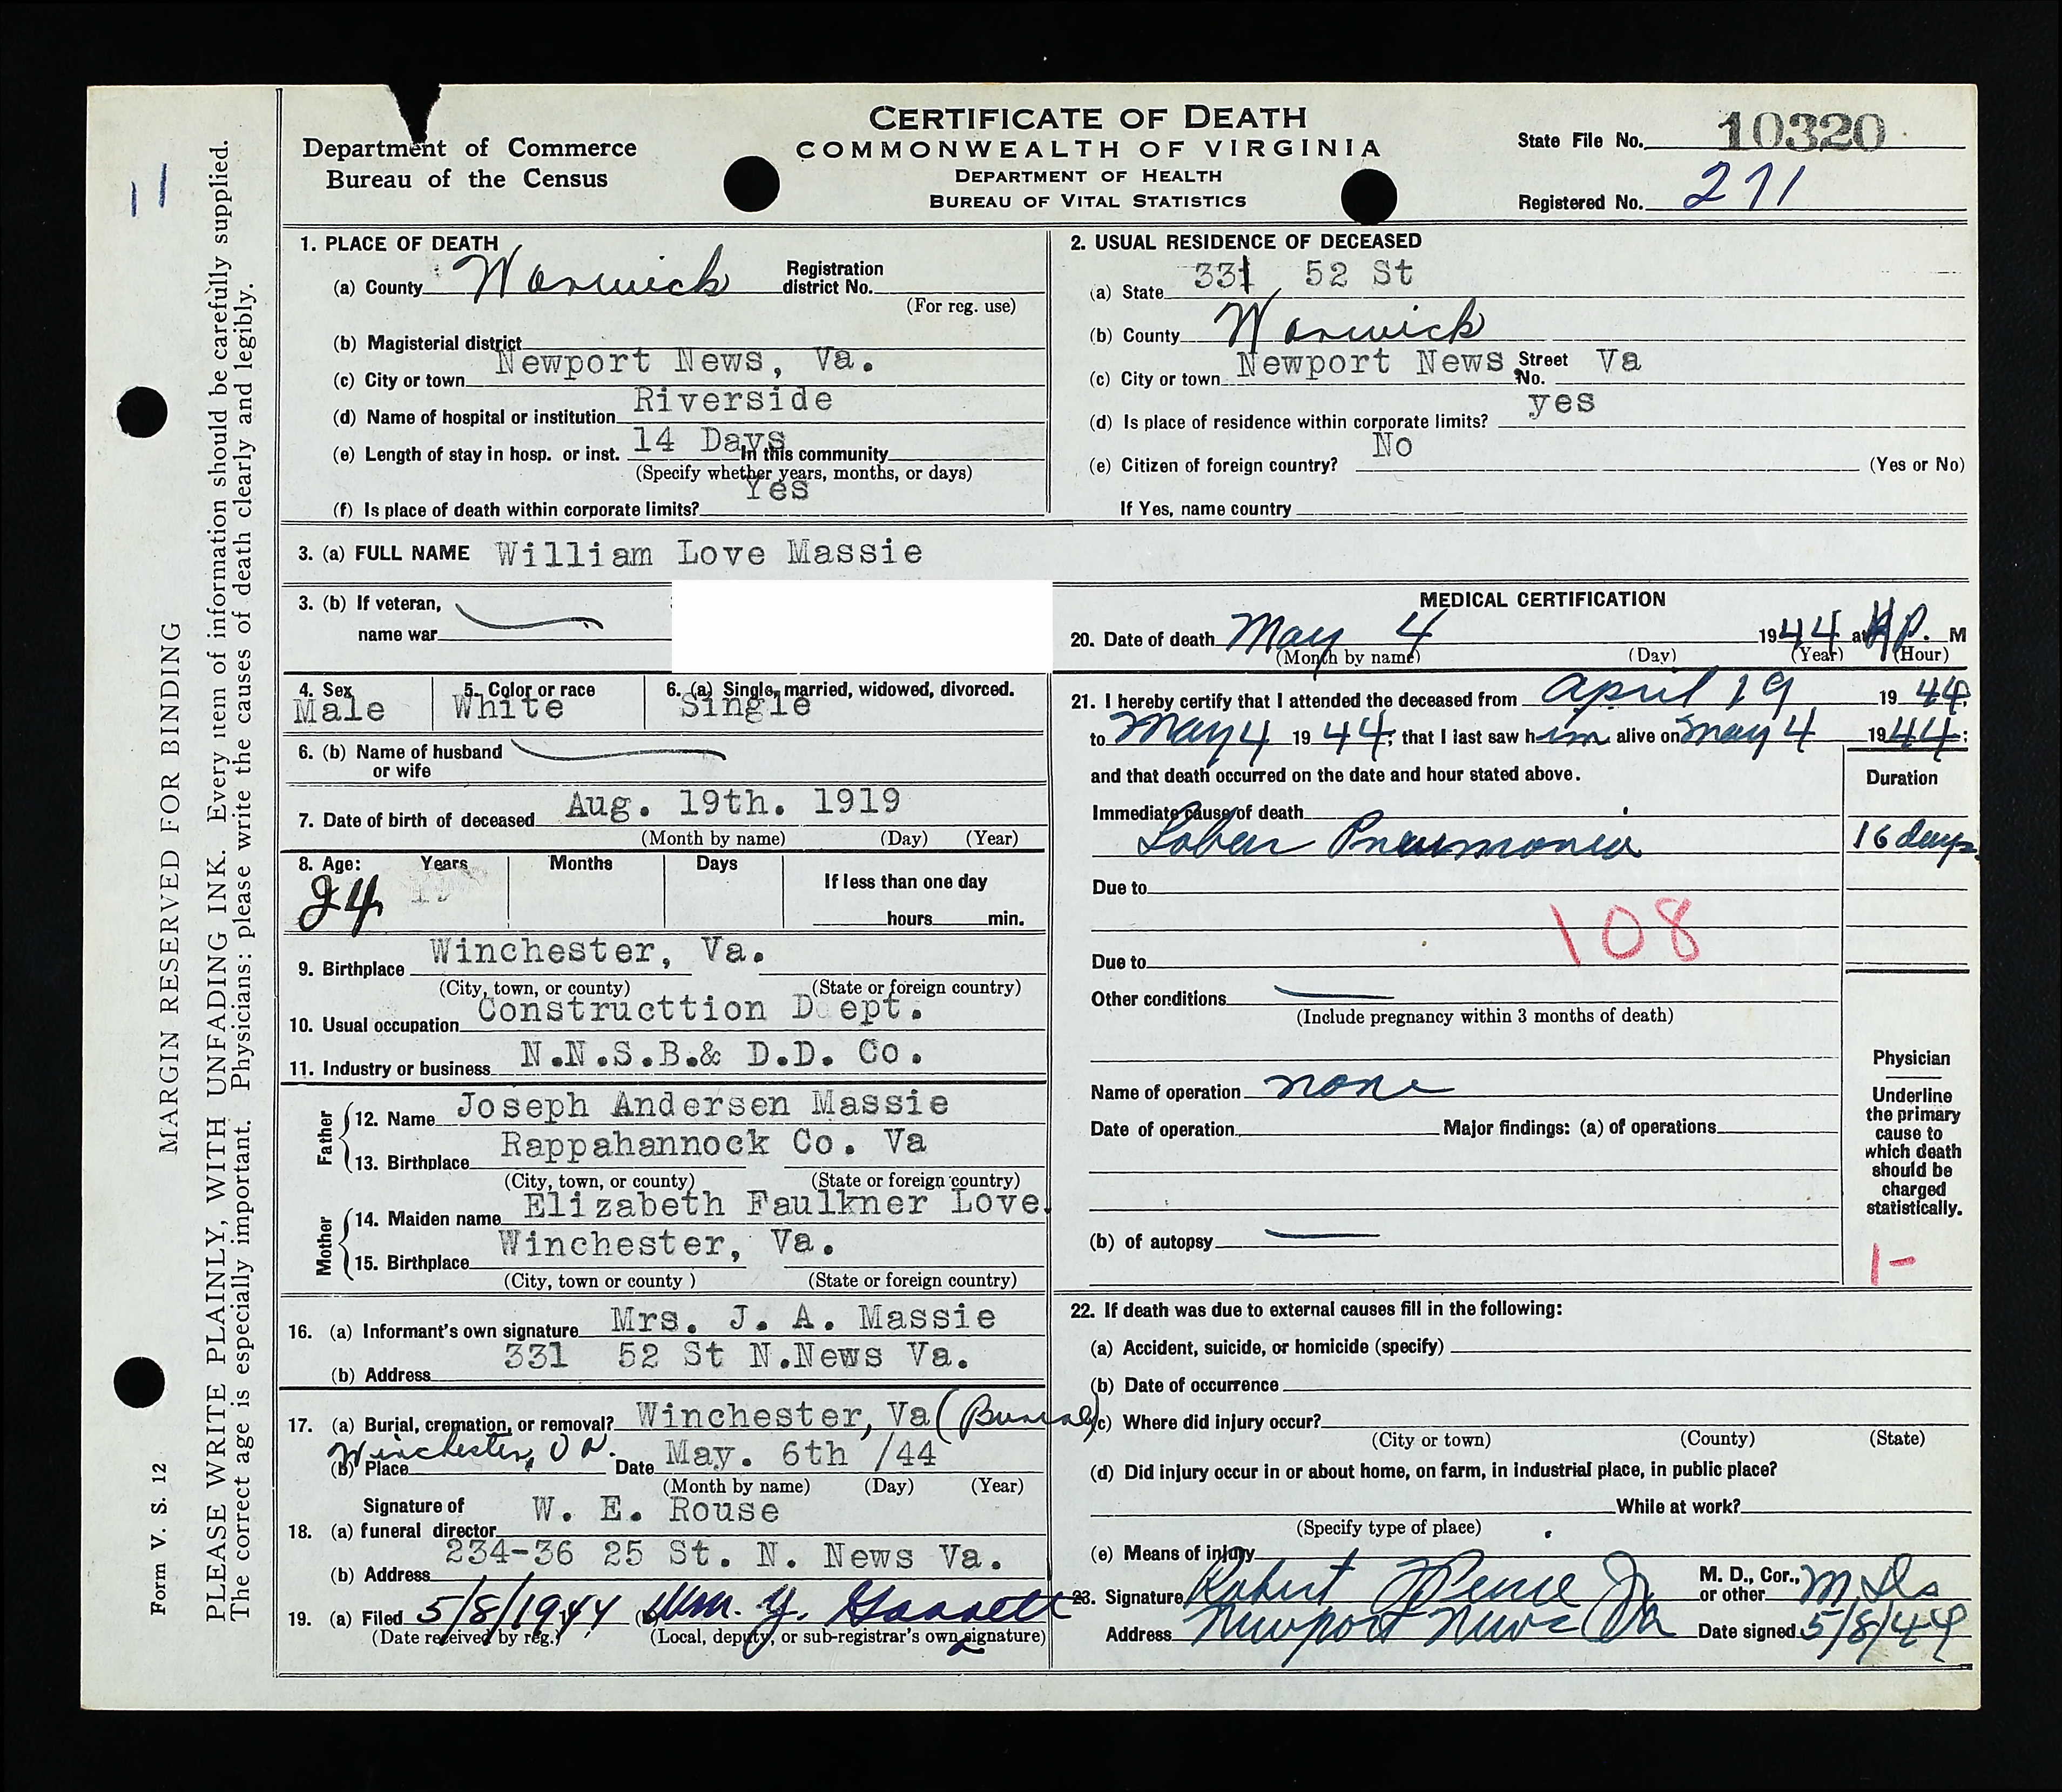 11
Department of Commerce
Bureau of the Census
CERTIFICATE OF DEATH
COMMONWEALTH OF VIRGINIA
DEPARTMENT OF HEALTH
BUREAU OF VITAL STATISTICS
State File No. 10320
Registered No. 271
MARGIN RESERVED FOR BINDING
PLEASE WRITE PLAINLY, WITH UNFADING INK. Every item of information should be carefully supplied.
The correct age is especially important. Physicians: please write the causes of death clearly and legibly.
Form V. S. 12
1. PLACE OF DEATH
(a) County Warwick Registration district No.
(For reg. use)
(b) Magisterial district
(c) City or town Newport News, Va.
(d) Name of hospital or institution Riverside
(e) Length of stay in hosp. or inst. 14 Days In this community
(Specify whether years, months, or days)
(f) Is place of death within corporate limits? Yes
2. USUAL RESIDENCE OF DECEASED
(a) State 331 52 St
(b) County Warwick
(c) City or town Newport News Street No. Va
(d) Is place of residence within corporate limits? yes
(e) Citizen of foreign country? No (Yes or No)
If Yes, name country
3. (a) FULL NAME William Love Massie
3. (b) If veteran,
name war
4. Sex Male
5. Color or race White
6. (a) Single, married, widowed, divorced. Single
6. (b) Name of husband
or wife
7. Date of birth of deceased Aug. 19th. 1919
(Month by name) (Day) (Year)
8. Age: Years Months Days
24
If less than one day
hours min.
9. Birthplace Winchester, Va.
(City, town, or county) (State or foreign country)
10. Usual occupation Constructtion D ept.
11. Industry or business N.N.S.B.& D.D. Co.
Father
12. Name Joseph Andersen Massie
13. Birthplace Rappahannock Co. Va
(City, town, or county) (State or foreign country)
Mother
14. Maiden name Elizabeth Faulkner Love.
15. Birthplace Winchester, Va.
(City, town or county ) (State or foreign country)
16. (a) Informant's own signature Mrs. J. A. Massie
(b) Address 331 52 St N.News Va.
17. (a) Burial, cremation, or removal? Winchester, Va (Burial)
(b) Place Winchester, Va. Date May. 6th /44
(Month by name) (Day) (Year)
Signature of
18. (a) funeral director W. E. Rouse
(b) Address 234-36 25 St. N. News Va.
19. (a) Filed 5/8/1944 (b) Wm. Y. Garrett
(Date received by reg.) (Local, deputy, or sub-registrar's own signature)
MEDICAL CERTIFICATION
20. Date of death May 4 1944 at P. M
(Month by name) (Day) (Year) (Hour)
21. I hereby certify that I attended the deceased from April 19 1944,
to May 4 1944; that I last saw him alive on May 4 1944;
and that death occurred on the date and hour stated above.
Duration
Immediate cause of death
Lobar Pneumonia 16 days
Due to
108
Due to
Other conditions
(Include pregnancy within 3 months of death)
Name of operation none
Date of operation Major findings: (a) of operations
(b) of autopsy
Physician
Underline
the primary
cause to
which death
should be
charged
statistically.
1-
22. If death was due to external causes fill in the following:
(a) Accident, suicide, or homicide (specify)
(b) Date of occurrence
(c) Where did injury occur?
(City or town) (County) (State)
(d) Did injury occur in or about home, on farm, in industrial place, in public place?
While at work?
(Specify type of place)
(e) Means of injury
23. Signature Robert Pence Jr M. D., Cor., or other
Address Newport News Va Date signed 5/8/44